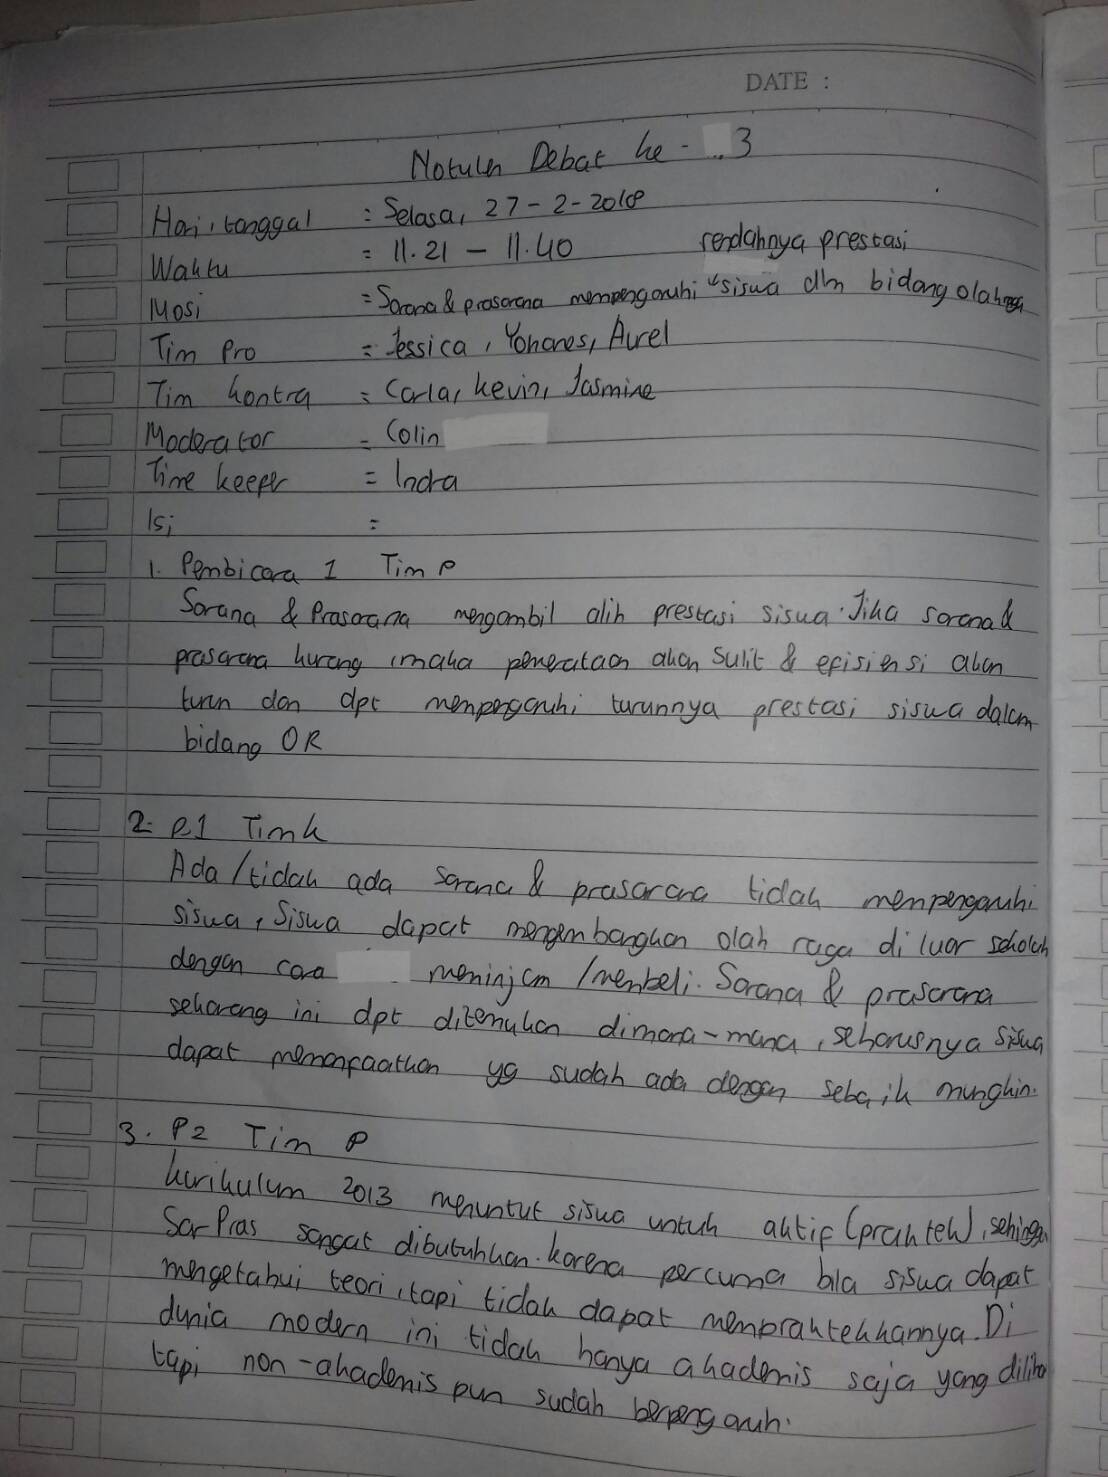 DATE :
Notulen Debat ke - 3
Hari, tanggal : Selasa, 27 - 2 - 2018
Waktu = 11.21 - 11.40 rendahnya prestasi
Mosi = Sarana & prasarana mempengaruhi "siswa dlm bidang olahraga
Tim Pro = Jessica, Yohanes, Aurel
Tim kontra = Carla, Kevin, Jasmine
Moderator = Colin
Time keeper = Indra
Isi =
1. Pembicara 1 Tim P
Sarana & Prasarana mengambil alih prestasi siswa. Jika sarana &
prasarana kurang, maka pemerataan akan sulit & efisiensi akan
turun dan dpt mempengaruhi turunnya prestasi siswa dalam
bidang OR
2. P1 Tim K
Ada/tidak ada sarana & prasarana tidak mempengaruhi
siswa, Siswa dapat mengembangkan olah raga di luar sekolah
dengan cara meminjam /membeli. Sarana & prasarana
sekarang ini dpt ditemukan dimana-mana, seharusnya siswa
dapat memanfaatkan yg sudah ada dengan sebaik mungkin.
3. P2 Tim P
kurikulum 2013 menuntut siswa untuk aktif (praktek), sehingga
SarPras sangat dibutuhkan. karena percuma bila siswa dapat
mengetahui teori, tapi tidak dapat mempraktekkannya. Di
dunia modern ini tidak hanya akademis saja yang dilihat
tapi non-akademis pun sudah berpengaruh.